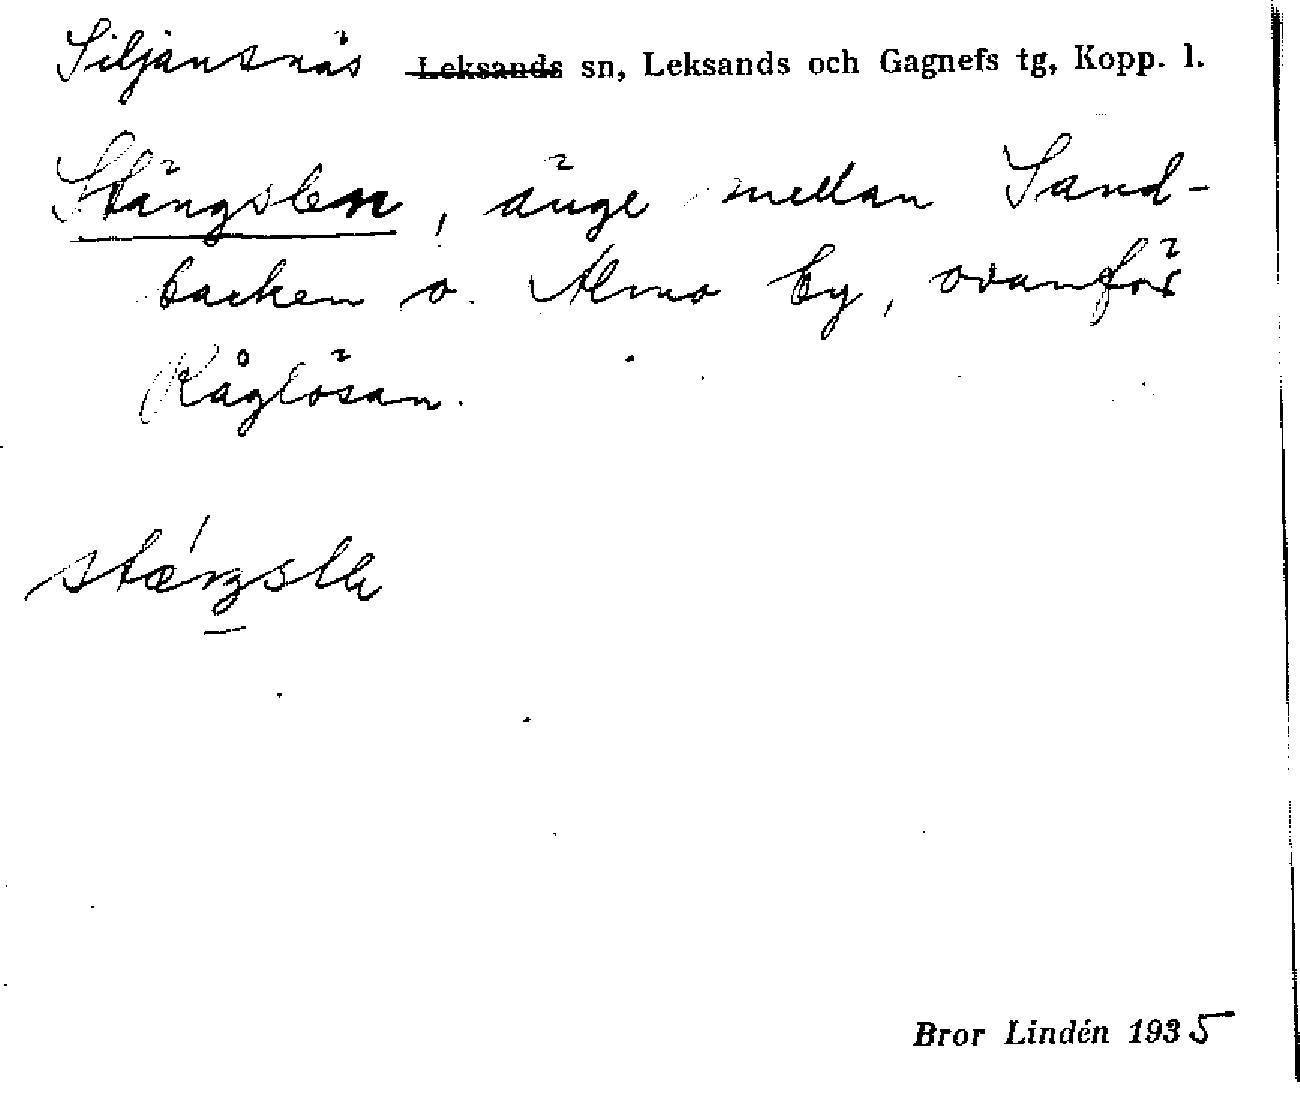 Siljansnäs ~~Leksands~~ sn, Leksands och Gagnefs tg, Kopp. l.
Stängslen, änge mellan Sand-
backen o. Almo by, ovanför
Kåglösan.
Bror Lindén 1935